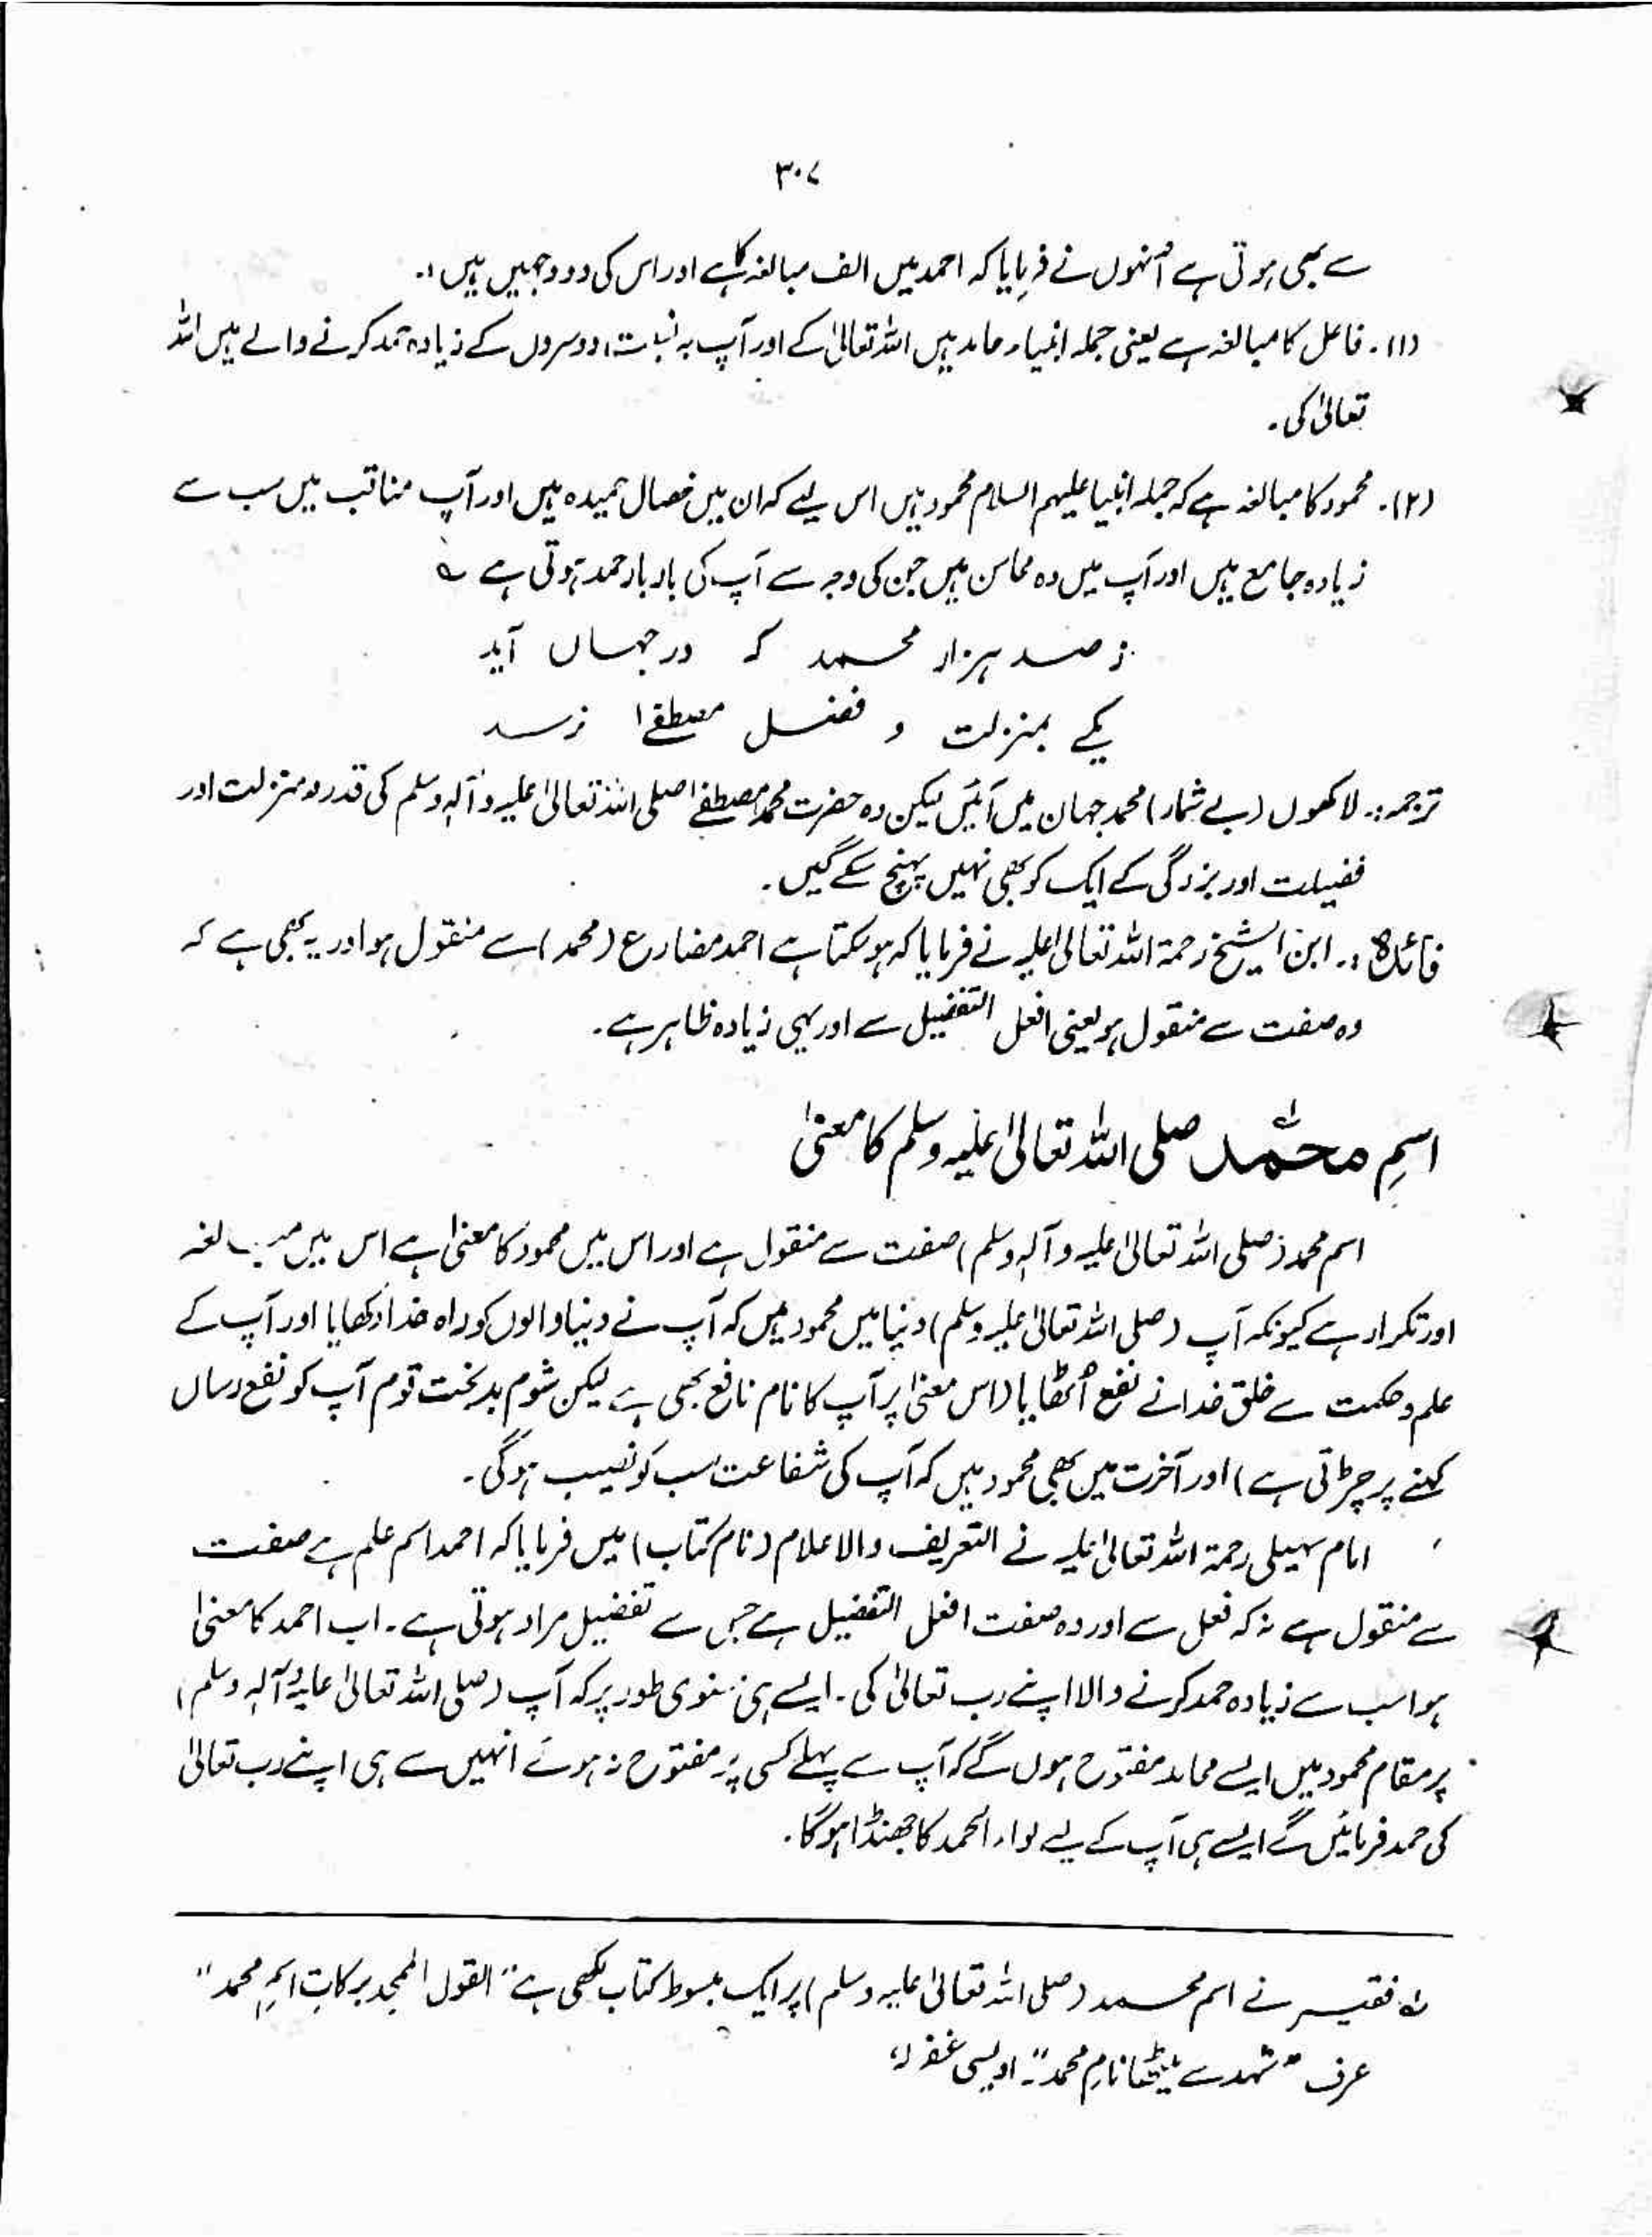 ۳۰۷
سے بھی ہوتی ہے اُنہوں نے فرمایا کہ احمد میں الف مبالغہ کا ہے اور اس کی دو وجہیں ہیں :۔
(۱)۔ فاعل کا مبالغہ ہے یعنی جملہ انبیاء حامد ہیں اللہ تعالیٰ کے اور آپ بہ نسبت دوسروں کے زیادہ حمد کرنے والے ہیں اللہ
تعالیٰ کی ۔
(۲)۔ محمود کا مبالغہ ہے کہ جملہ انبیا علیہم السلام محمود ہیں اس لیے کہ ان میں خصال حمیدہ ہیں اور آپ مناقب میں سب سے
زیادہ جامع ہیں اور آپ میں وہ محاسن ہیں جن کی وجہ سے آپ کی بار بار حمد ہوتی ہے ؎
ز صد ہزار محمد کہ در جہاں آید
یکے بمنزلت و فضل مصطفےٰ نرسد
ترجمہ:۔ لاکھوں (بے شمار) محمد جہان میں آئیں لیکن وہ حضرت محمد مصطفےٰ صلی اللہ تعالیٰ علیہ وآلہٖ وسلم کی قدر و منزلت اور
فضیلت اور بزرگی کے ایک کو بھی نہیں پہنچ سکے گیں ۔
فائدہ :۔ ابن الشیخ رحمۃ اللہ تعالیٰ علیہ نے فرمایا کہ ہو سکتا ہے احمد مضارع (محمد) سے منقول ہو اور یہ بھی ہے کہ
وہ صفت سے منقول ہو یعنی افعل التفضیل سے اور یہی زیادہ ظاہر ہے ۔
اسمِ محمّد صلی اللہ تعالیٰ علیہ وسلم کا معنیٰ
اسم محمد (صلی اللہ تعالیٰ علیہ وآلہٖ وسلم) صفت سے منقول ہے اور اس میں محمود کا معنیٰ ہے اس میں مبالغہ
اور تکرار ہے کیونکہ آپ (صلی اللہ تعالیٰ علیہ وسلم) دنیا میں محمود ہیں کہ آپ نے دنیا والوں کو راہ خدا دکھایا اور آپ کے
علم و حکمت سے خلق خدا نے نفع اُٹھایا (اس معنیٰ پر آپ کا نام نافع بھی ہے لیکن شوم بدبخت قوم آپ کو نفع رساں
کہنے پر چڑتی ہے) اور آخرت میں بھی محمود ہیں کہ آپ کی شفاعت سب کو نصیب ہوگی ۔
امام سہیلی رحمۃ اللہ تعالیٰ علیہ نے التعریف والاعلام (نام کتاب) میں فرمایا کہ احمد اسم علم ہے صفت
سے منقول ہے نہ کہ فعل سے اور وہ صفت افعل التفضیل ہے جس سے تفضیل مراد ہوتی ہے ۔ اب احمد کا معنیٰ
ہوا سب سے زیادہ حمد کرنے والا اپنے رب تعالیٰ کی ۔ ایسے ہی معنوی طور پر کہ آپ (صلی اللہ تعالیٰ علیہ وآلہٖ وسلم)
پر مقام محمود میں ایسے محامد مفتوح ہوں گے کہ آپ سے پہلے کسی پر مفتوح نہ ہوئے انہیں سے ہی اپنے رب تعالیٰ
کی حمد فرمائیں گے ایسے ہی آپ کے لیے لواء الحمد کا جھنڈا ہوگا ۔
فقیر نے اسم محمد (صلی اللہ تعالیٰ علیہ وسلم) پر ایک مبسوط کتاب لکھی ہے "القول الممجد برکات اسمِ محمد"
عرف "شہد سے میٹھا نامِ محمد"۔ اویسی غفرلہ؛